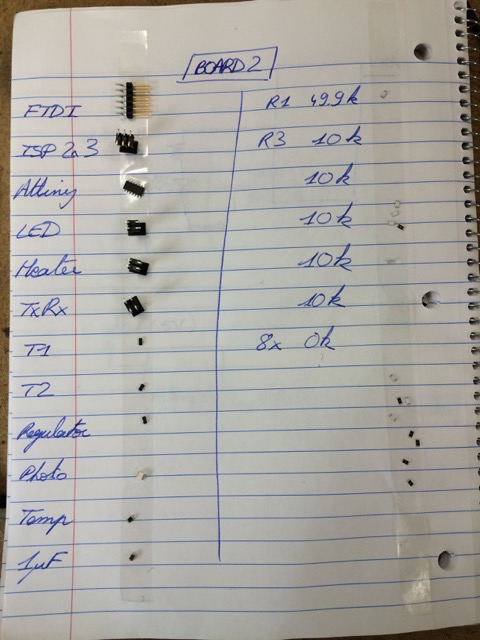 BOARD 2
FTDI
ISP 2x3
Attiny
LED
Heater
TxRx
T1
T2
Regulator
Photo
Temp
1µF
R1 49.9k
R3 10k
10k
10k
10k
10k
8x 0k